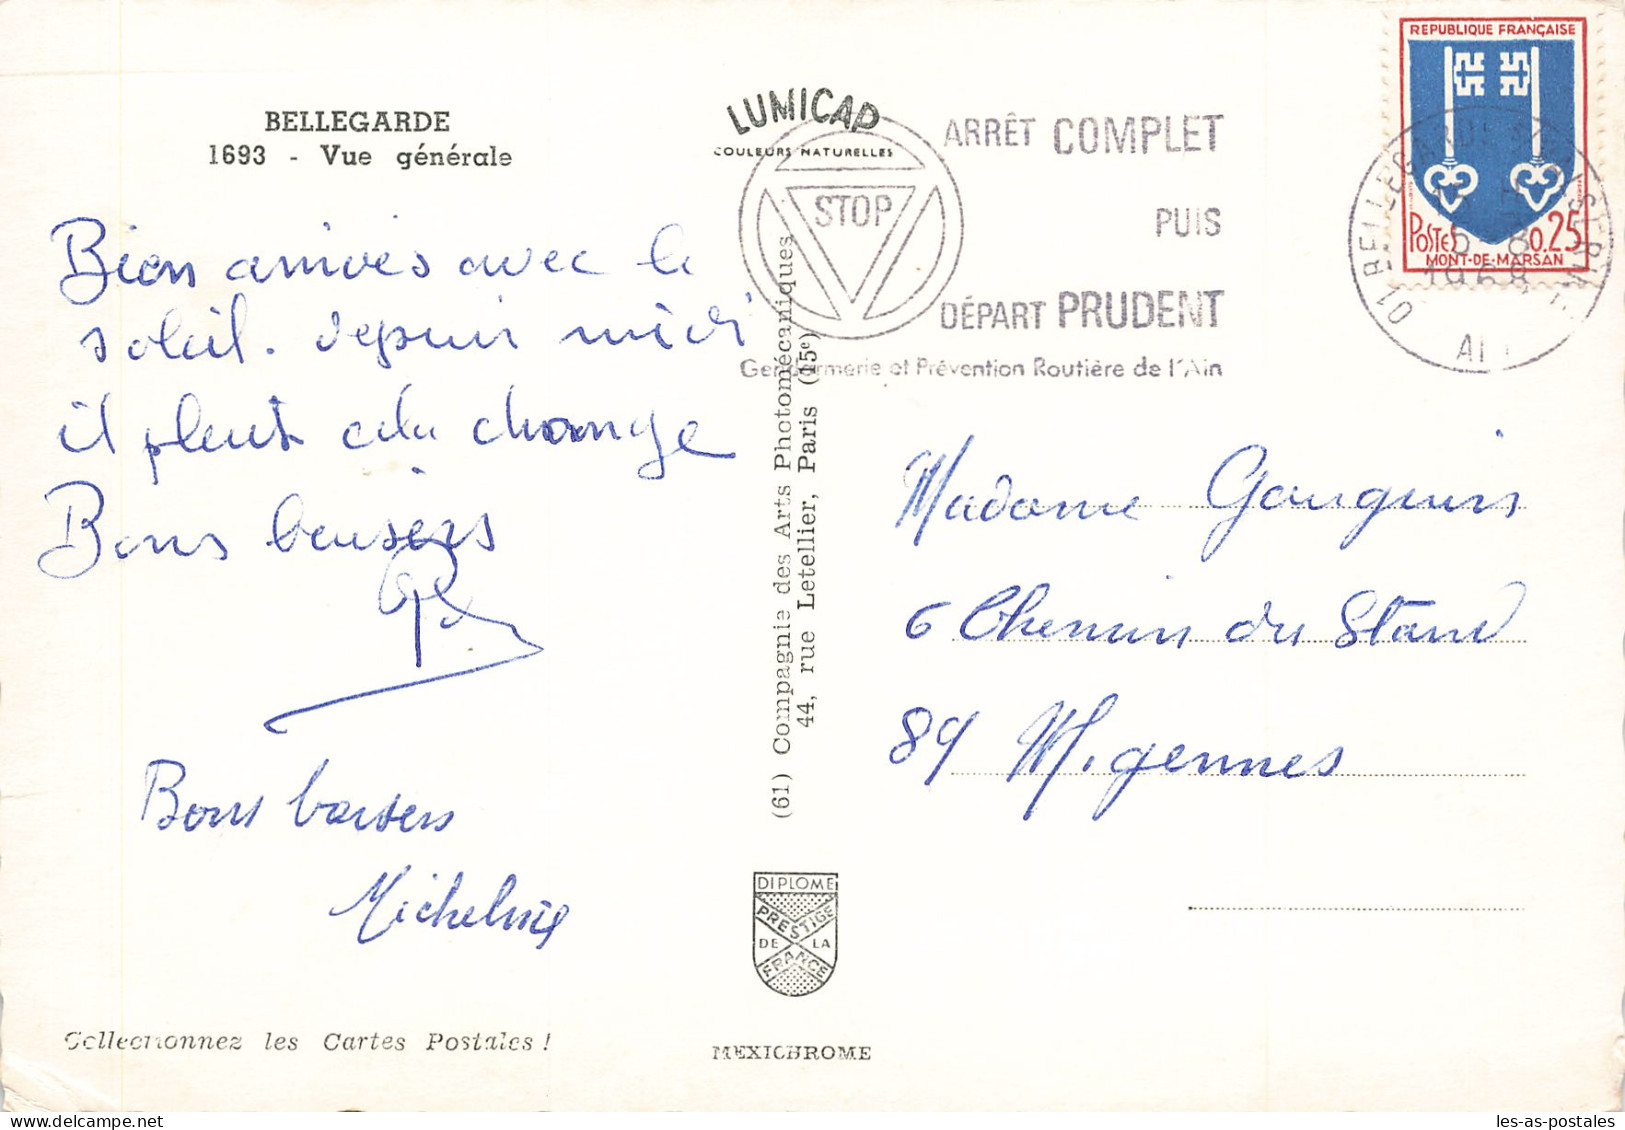 BELLEGARDE
1693 - Vue générale
Bien arrivés avec le
soleil. depuis midi
il pleut cela change
Bons beusers
Bons baisers
Micheline
Collectionnez les Cartes Postales !
LUMICAP
COULEURS NATURELLES
(61) Compagnie des Arts Photomécaniques
44, rue Letellier, Paris (15e)
DIPLOME
PRESTIGE
DE LA
FRANCE
MEXICHROME
STOP
ARRÊT COMPLET
PUIS
DÉPART PRUDENT
Gendarmerie et Prévention Routière de l'Ain
REPUBLIQUE FRANÇAISE
POSTES 0.25
MONT-DE-MARSAN
01 BELLEGARDE
1968
AIN
Madame
6 Chemin du Stand
89 Migennes
les-as-postales